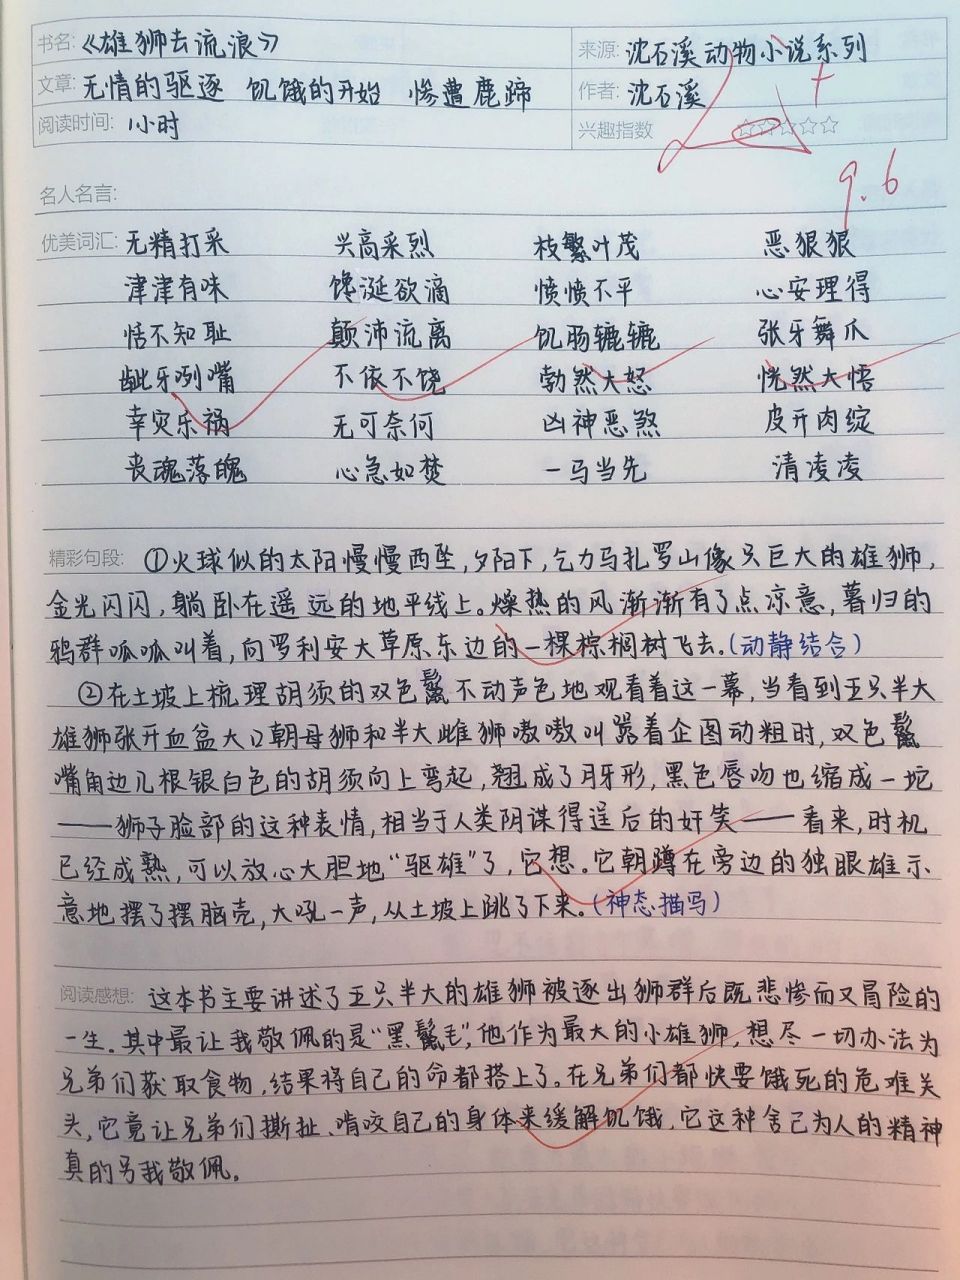 书名: 《雄狮去流浪》
来源: 沈石溪动物小说系列
文章: 无情的驱逐 饥饿的开始 惨遭鹿蹄
作者: 沈石溪
阅读时间: 1小时
兴趣指数 ☆☆☆☆☆
9.6
名人名言:
优美词汇: 无精打采 兴高采烈 枝繁叶茂 恶狠狠
津津有味 馋涎欲滴 愤愤不平 心安理得
恬不知耻 颠沛流离 饥肠辘辘 张牙舞爪
龇牙咧嘴 不依不饶 勃然大怒 恍然大悟
幸灾乐祸 无可奈何 凶神恶煞 皮开肉绽
丧魂落魄 心急如焚 一马当先 清凌凌
精彩句段: ①火球似的太阳慢慢西坠,夕阳下,乞力马扎罗山像只巨大的雄狮,
金光闪闪,躺卧在遥远的地平线上。燥热的风渐渐有了点凉意,暮归的
鸦群呱呱叫着,向罗利安大草原东边的一棵棕榈树飞去。(动静结合)
②在土坡上梳理胡须的双色鬣不动声色地观看着这一幕,当看到五只半大
雄狮张开血盆大口朝母狮和半大雌狮嗷嗷叫嚣着企图动粗时,双色鬣
嘴角边几根银白色的胡须向上弯起,翘成了月牙形,黑色唇吻也缩成一坨
——狮子脸部的这种表情,相当于人类阴谋得逞后的奸笑——看来,时机
已经成熟,可以放心大胆地“驱雄”了,它想。它朝蹲在旁边的独眼雄示
意地摆了摆脑壳,大吼一声,从土坡上跳了下来。(神态描写)
阅读感想: 这本书主要讲述了五只半大的雄狮被逐出狮群后既悲惨而又冒险的
一生。其中最让我敬佩的是“黑鬣毛”,他作为最大的小雄狮,想尽一切办法为
兄弟们获取食物,结果将自己的命都搭上了。在兄弟们都快要饿死的危难关
头,它竟让兄弟们撕扯、啃咬自己的身体来缓解饥饿,它这种舍己为人的精神
真的另我敬佩。